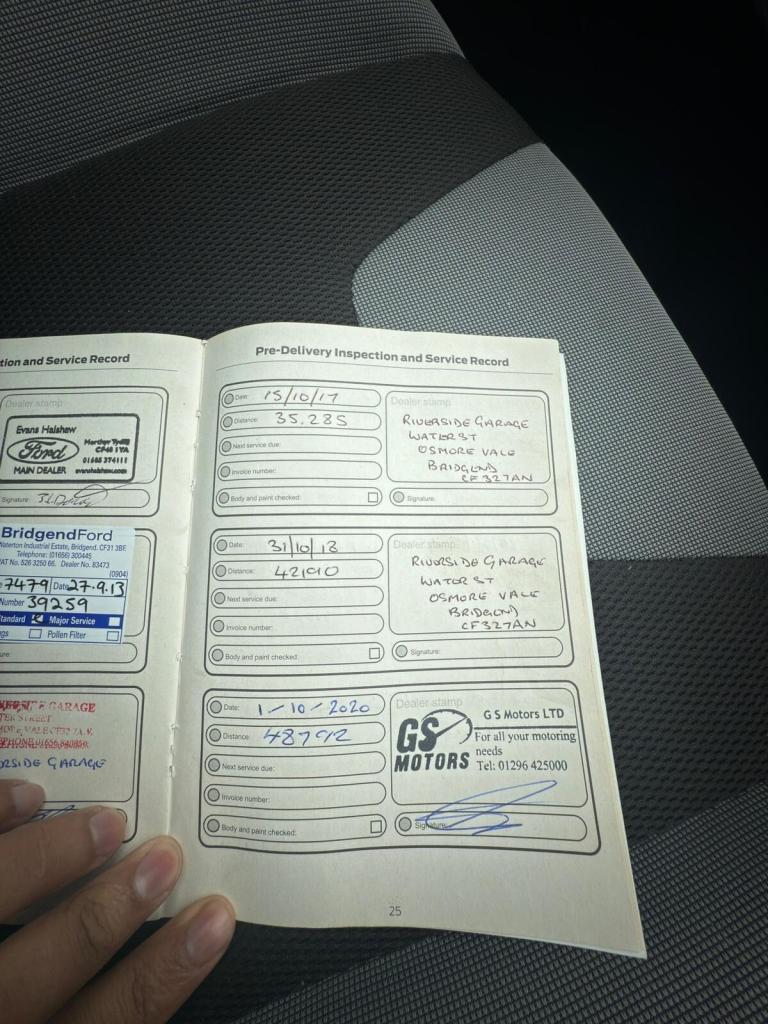 tion and Service Record
Dealer stamp
Evans Halshaw
Ford
Merthyr Tydfil
CF48 1YA
01685 374111
MAIN DEALER evanshalshaw.com
Signature:
BridgendFord
Waterton Industrial Estate, Bridgend. CF31 3BE
Telephone: (01656) 300445
VAT No. 526 3250 66. Dealer No. 83473
(0904)
7479 Date 27.9.13
Number 39259
tandard Major Service
gs Pollen Filter
ure:
GARAGE
STREET
RSIDE GARAGE
Pre-Delivery Inspection and Service Record
Date: 15/10/17
Distance: 35.285
Next service due:
Invoice number:
Body and paint checked:
Dealer stamp
RIVERSIDE GARAGE
WATER ST
OSMORE VALE
BRIDGEND
CF327AN
Signature:
Date: 31/10/18
Distance: 42190
Next service due:
Invoice number:
Body and paint checked:
Dealer stamp
RIVERSIDE GARAGE
WATER ST
OSMORE VALE
BRIDGEND
CF327AN
Signature:
Date: 1-10-2020
Distance: 48792
Next service due:
Invoice number:
Body and paint checked:
Dealer stamp
GS
MOTORS
G S Motors LTD
For all your motoring
needs
Tel: 01296 425000
Signature:
25